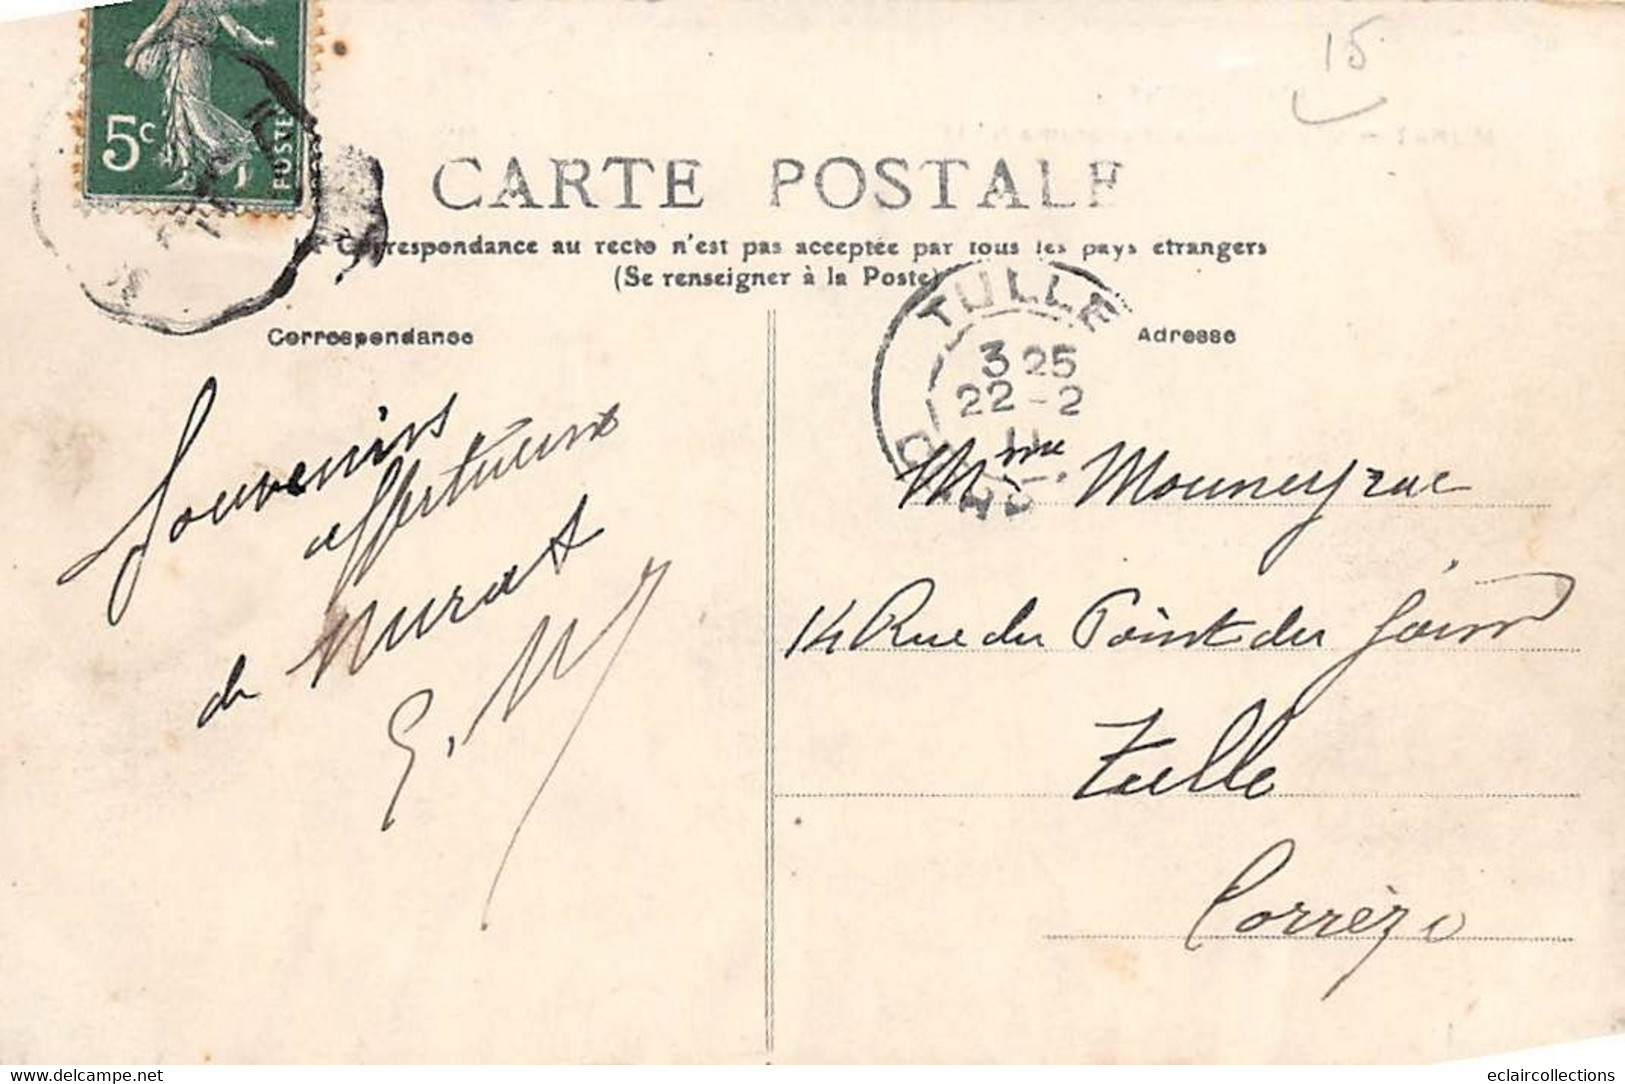 15
5c
POSTES
CARTE POSTALE
La Correspondance au recto n'est pas acceptée par tous les pays étrangers
(Se renseigner à la Poste)
TULLE
3 25
22 - 2
11
Correspondance
Adresse
Souvenirs
affectueux
de Murat
E. M
Mme Mouneyrac
14 Rue du Point du Jour
Tulle
Corrèze
eclaircollections